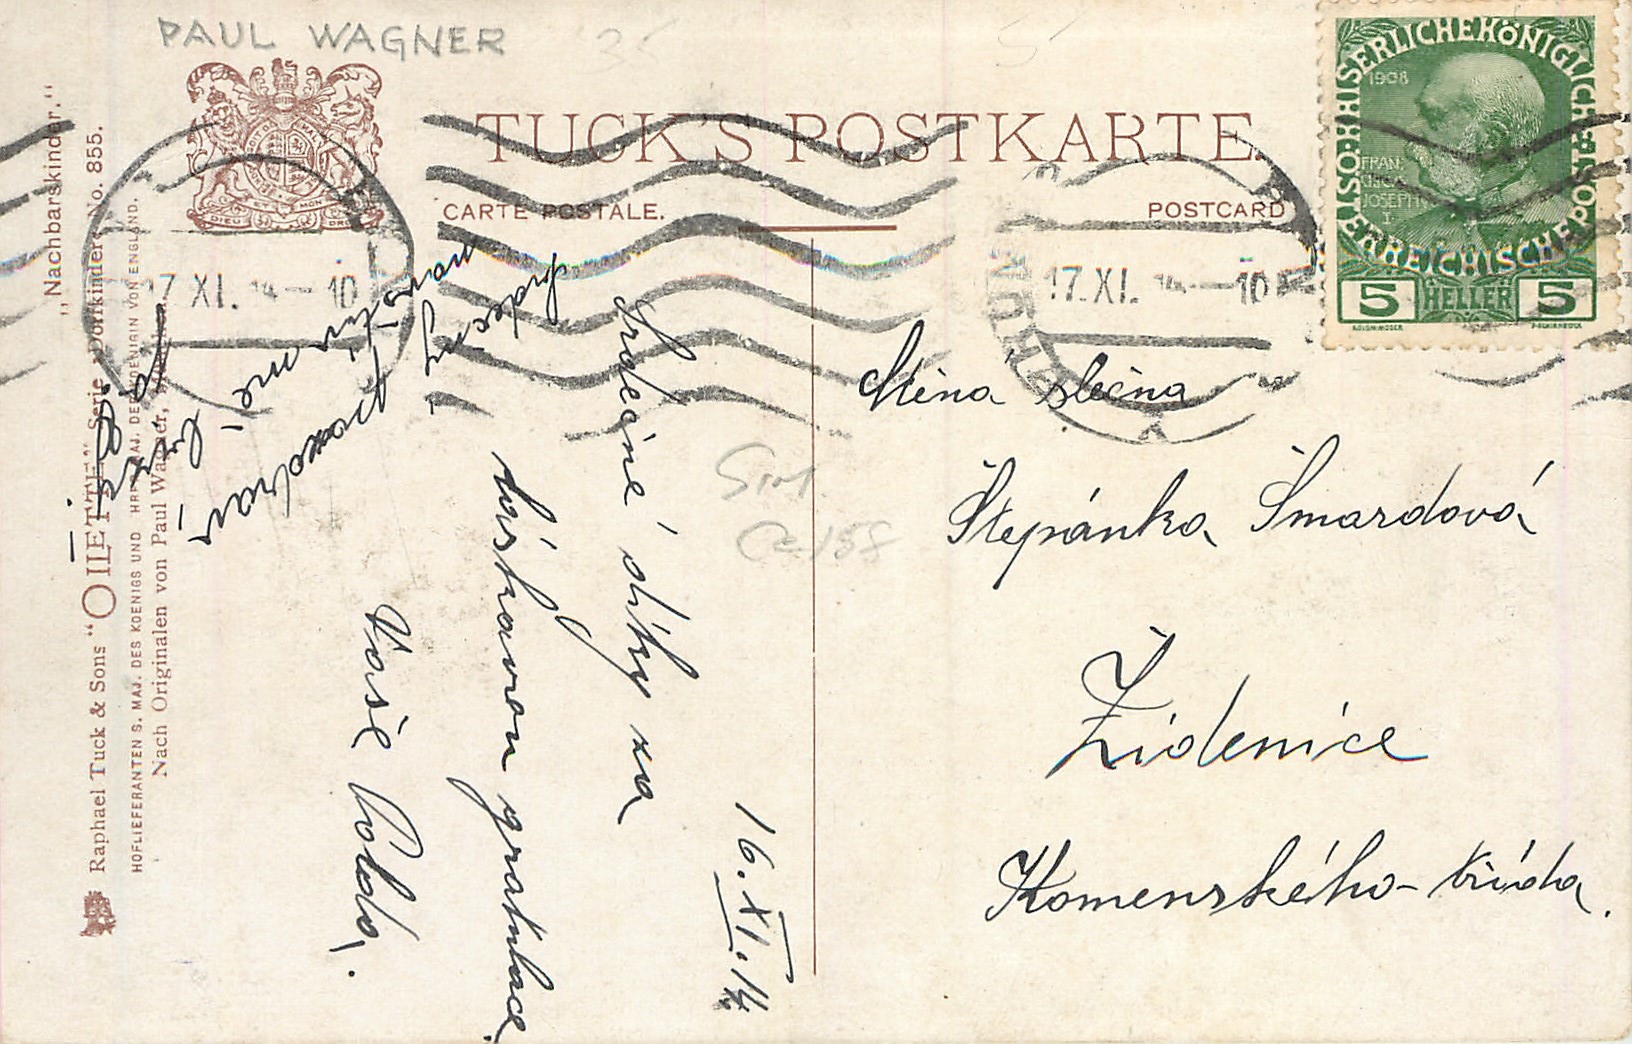 PAUL WAGNER
35
5
TUCK'S POSTKARTE.
CARTE POSTALE.
POSTCARD
DIEU ET MON DROIT
„Nachbarskinder.“
Raphael Tuck & Sons "OILETTE" Serie „Dorfkinder“ No. 855.
HOFLIEFERANTEN S. MAJ. DES KOENIGS UND IHRER MAJ. DER KOENIGIN VON ENGLAND.
Nach Originalen von Paul Wagner,
KAISERLICHE KÖNIGLICHE ÖSTERREICHISCHE POST
1908
FRANCISCO JOSEPH I.
5 HELLER 5
17. XI. 14 – 10
17. XI. 14 – 10
16. XI. 14
Srdečné díky za
láskavou gratulaci
Vaše Polda.
srdečný
pozdrav
Ctěná slečna
Štepánka Šmardová
Židenice
Komenského-třída.